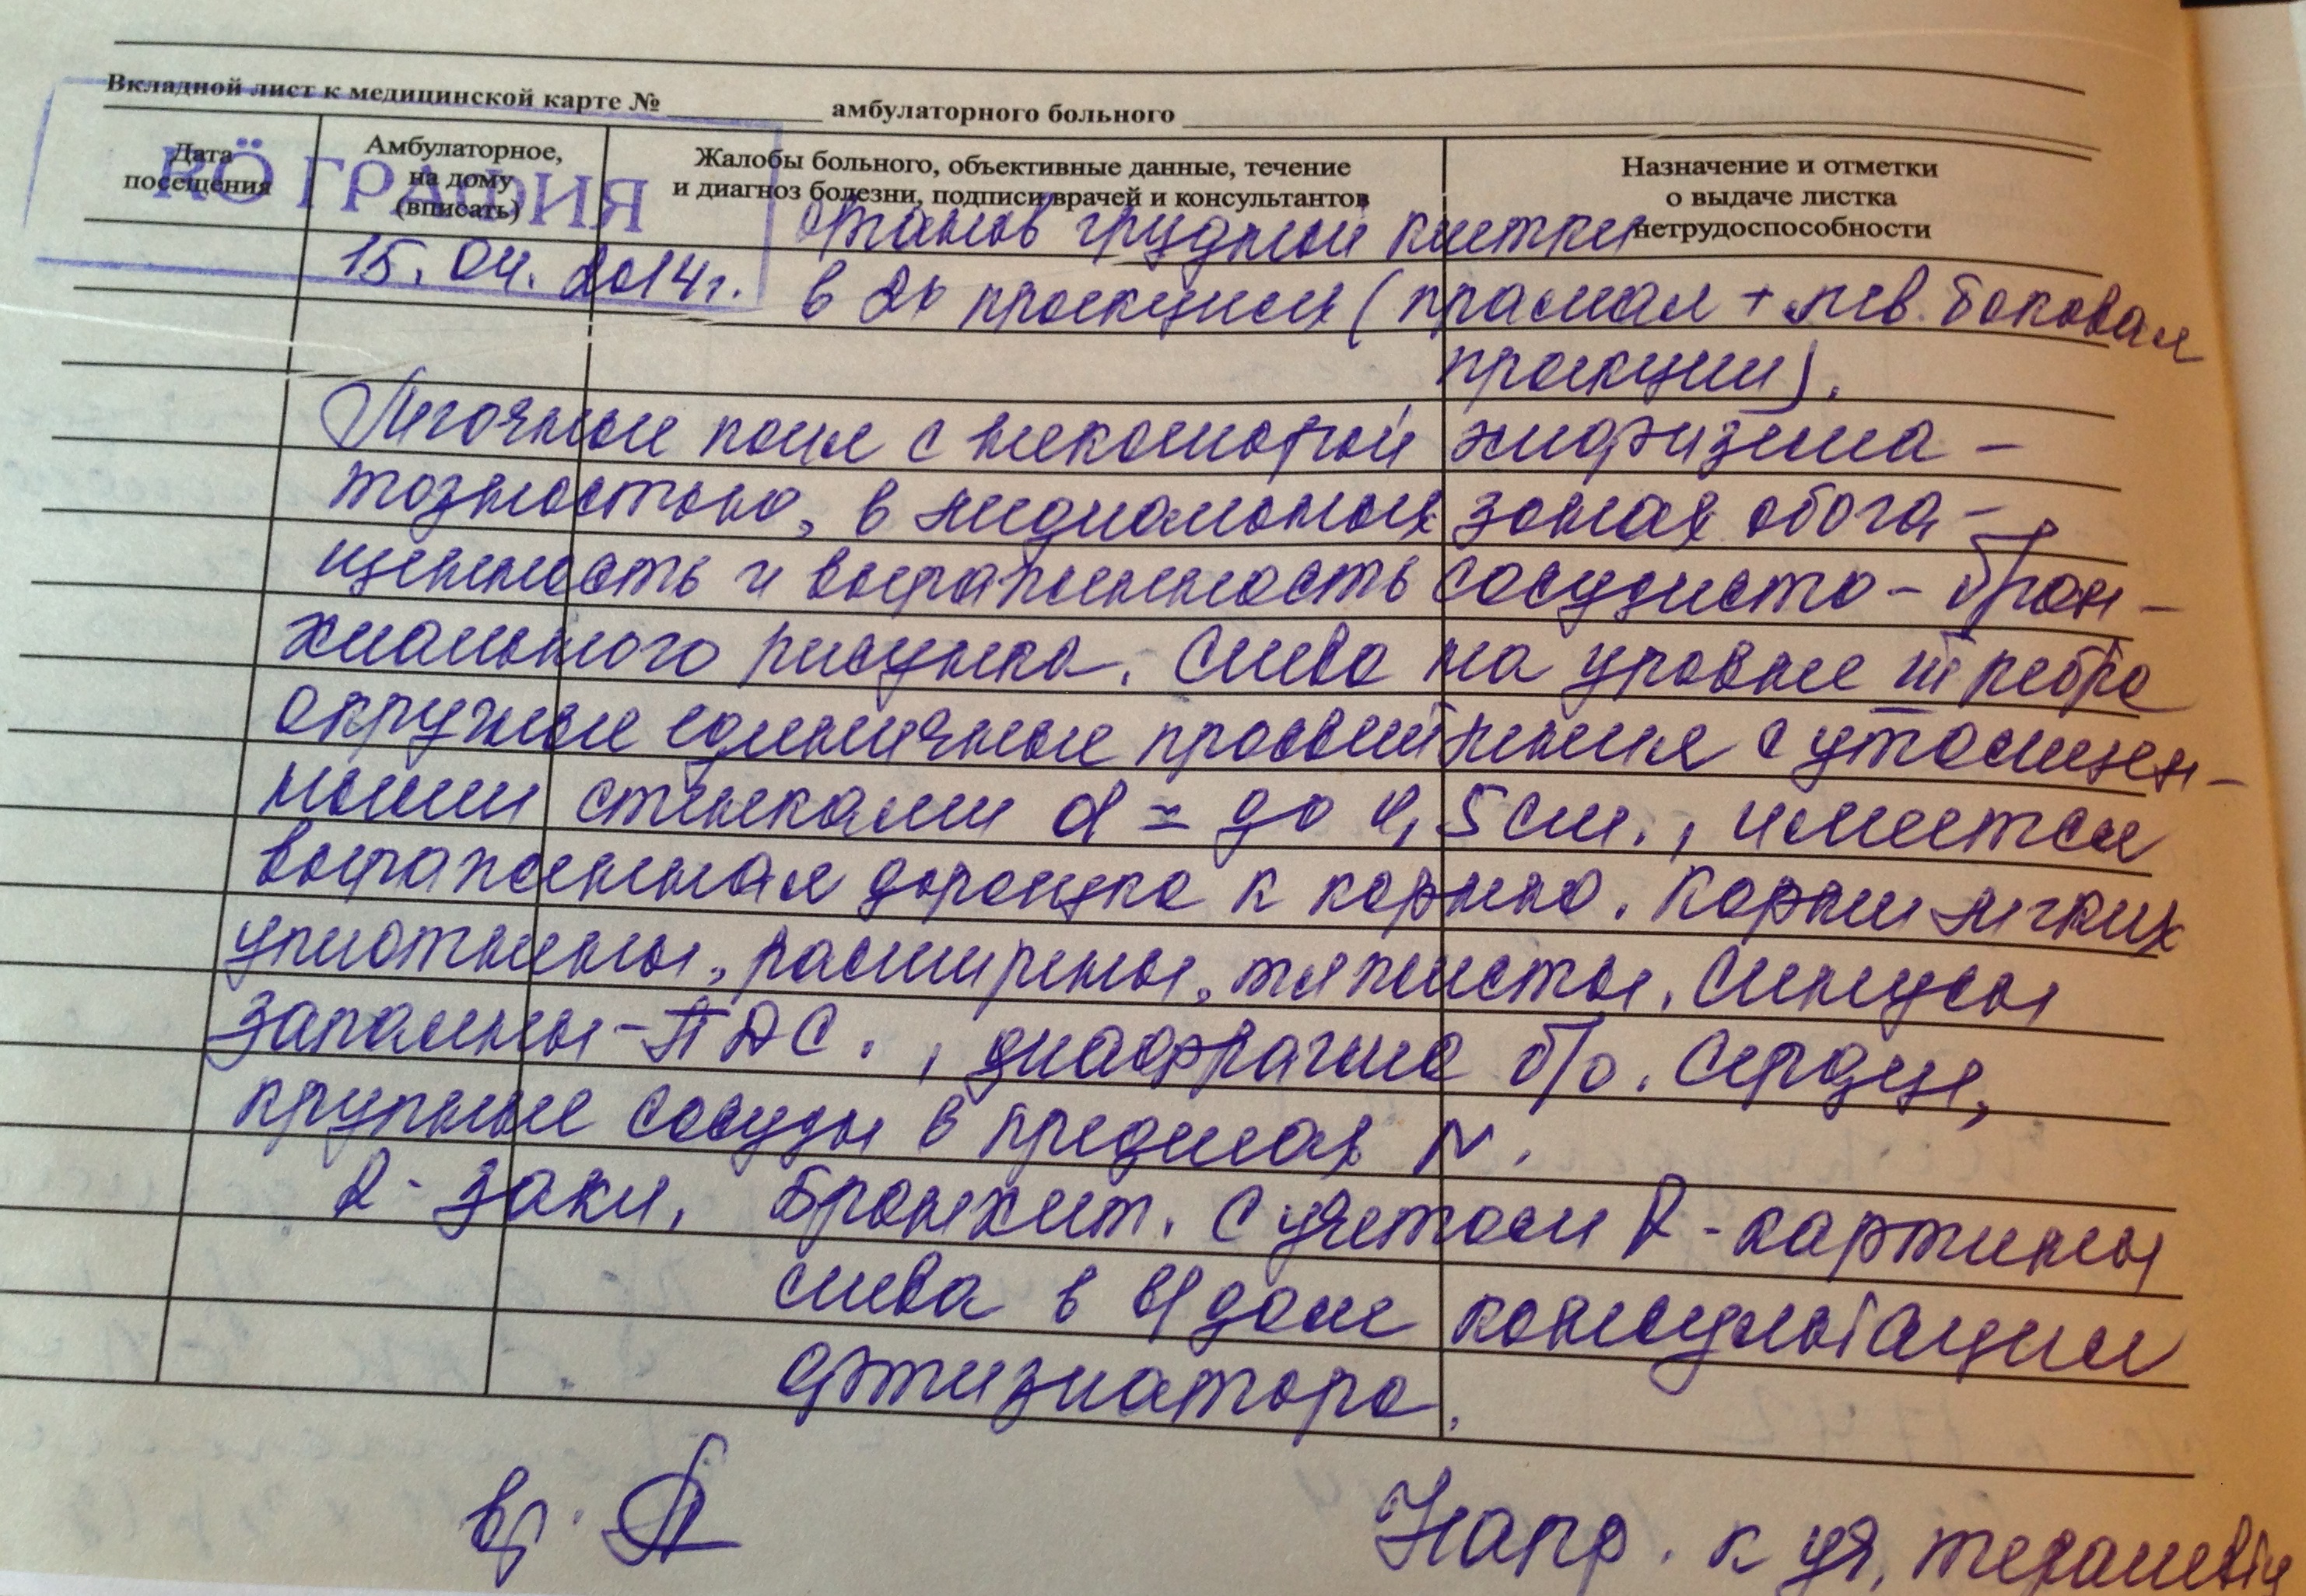 Вкладной лист к медицинской карте № амбулаторного больного
Дата посещения
Амбулаторное, на дому (вписать)
Жалобы больного, объективные данные, течение и диагноз болезни, подписи врачей и консультантов
Назначение и отметки о выдаче листка нетрудоспособности
ГРАФИЯ
органов грудной клетки
15.04.2014г. в 2х проекциях (прямая + лев. боковая
проекции).
Легочные поля с некоторой эмфизема-
тозностью, в медиальных зонах обога-
щенность и выраженность сосудисто-брон-
хиального рисунка. Слева на уровне III ребра
округлые единичные просветления с утолщен-
ными стенками d = до 4,5 см., имеется
выраженная дорожка к корню. Корни легких
уплотнены, расширены, тяжисты. Синусы
запаяны - ПДС., диафрагма б/о. Сердце,
крупные сосуды в пределах N.
R-закл. Бронхит. С учетом R-картины
слева в в/доле консультация
фтизиатора.
вр.
Напр. к уч. терапевту